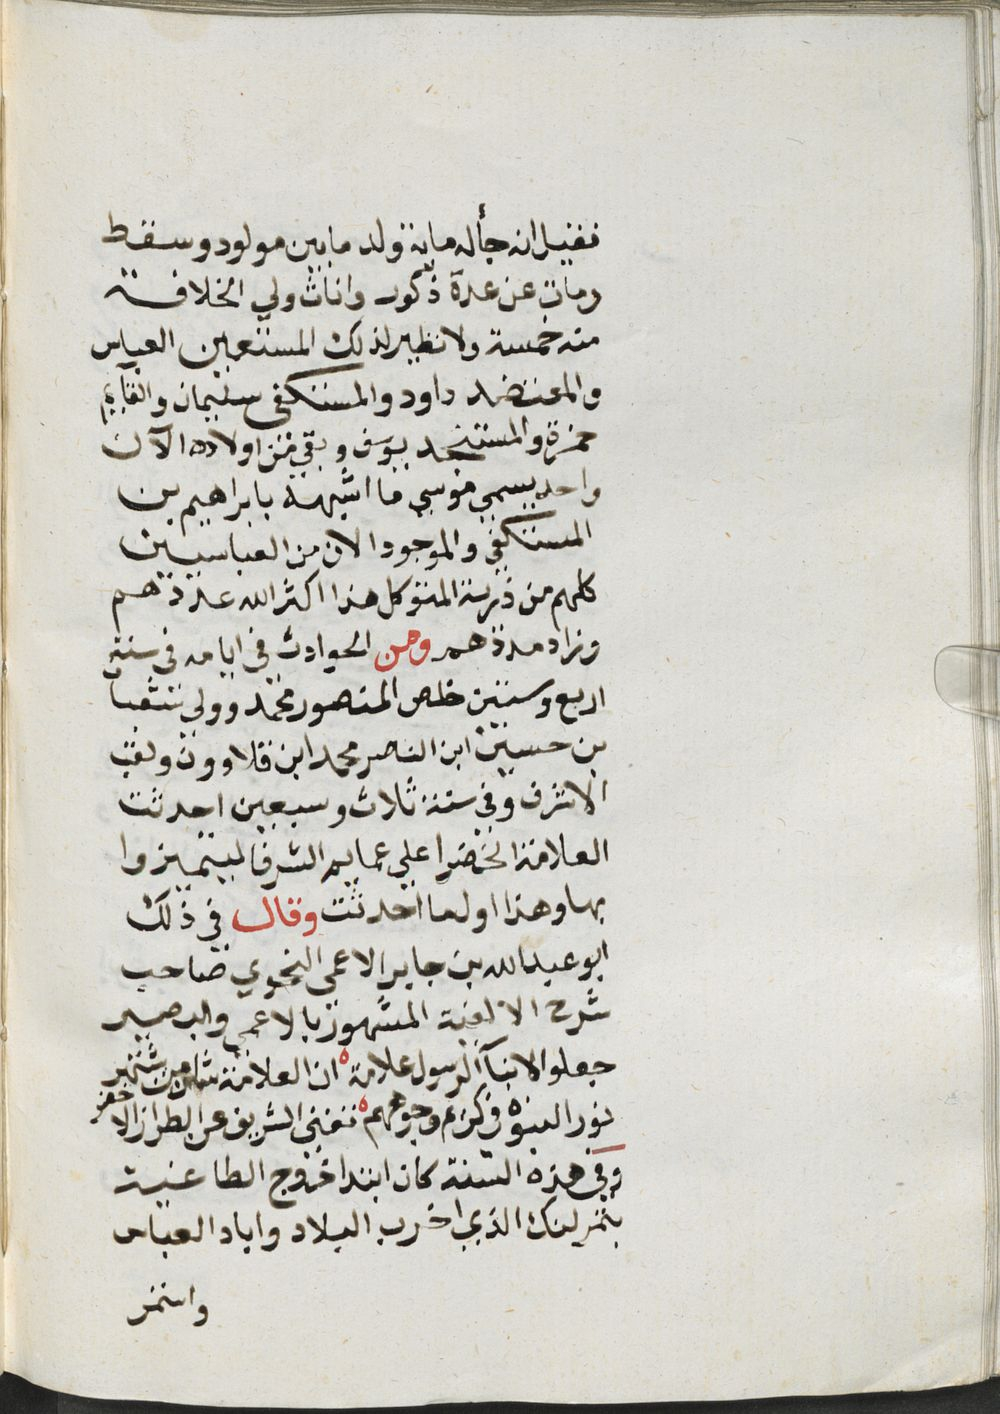 فقيل انه جأله ماية ولد مابين مولود وسقط
ومات عن عدة ذكور واناث ولي الخلافة
منه خمسة ولا نظير لذلك المستعين العباس
والمعتضد داود والمستكفي سليمان والقايم
حمزة والمستنجد يوسف وبقي من اولاده الآن
واحد يسمي موسي ما اشبهه بابراهيم بن
المستكفي والموجود الان من العباسيين
كلهم من ذرية المتوكل هذا اكثر الله عددهم
وزاد مددهم ومن الحوادث في ايامه في سنة
اربع وستين خلص المنصور محمد وولي شعبان
بن حسين ابن الناصر محمد ابن قلاوون ولقب
الاشرف وفي سنة ثلاث وسبعين احدثت
العلامة الخضرا علي عمايم الشرفا ليتميزوا
بها وهذا اول ما احدثت وقال في ذلك
ابو عبد الله بن جابر الاعمى النحوي صاحب
شرح الالفية المشهور بالاعمي والبصير
جعلوا الابنآ الرسول علامة ه ان العلامة شان من يشتهر
نور النبوة في كريم وجوههم ه تغني الشريف عن الطراز الاخضر
وفي هذه السنة كان ابتدا خروج الطاغية
بتمرلنك الذي اخرب البلاد واباد العباد
واستمر